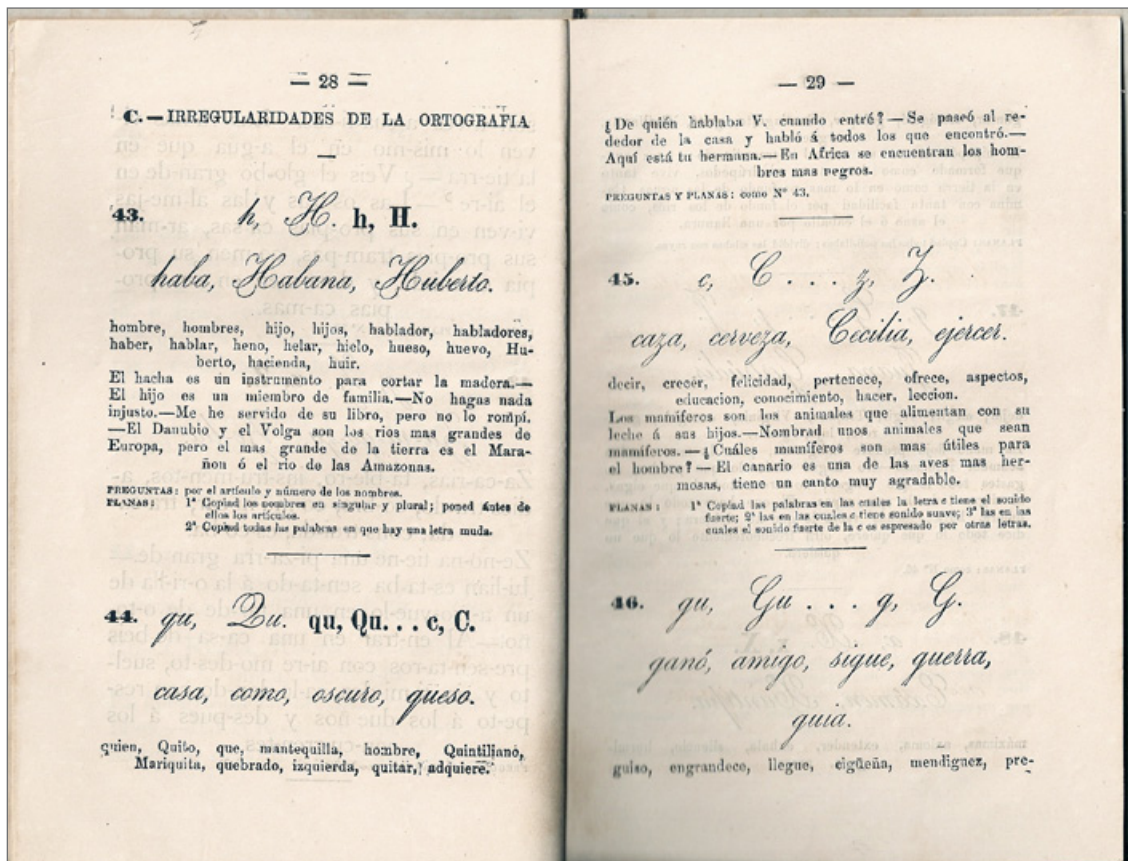 — 28 —
C. — IRREGULARIDADES DE LA ORTOGRAFIA
43. h, H. h, H.
haba, Habana, Huberto.
hombre, hombres, hijo, hijos, hablador, habladores,
haber, hablar, heno, helar, hielo, hueso, huevo, Hu-
berto, hacienda, huir.
El hacha es un instrumento para cortar la madera.—
El hijo es un miembro de familia.—No hagas nada
injusto.—Me he servido de su libro, pero no lo rompí.
—El Danubio y el Volga son los rios mas grandes de
Europa, pero el mas grande de la tierra es el Mara-
ñon ó el rio de las Amazonas.
PREGUNTAS: por el artículo y número de los nombres.
PLANAS: 1ª Copiad los nombres en singular y plural; poned ántes de
ellos los artículos.
2ª Copiad todas las palabras en que hay una letra muda.
44. qu, Qu. qu, Qu... c, C.
casa, como, oscuro, queso.
quien, Quito, que, mantequilla, hombre, Quintiliano,
Mariquita, quebrado, izquierda, quitar, adquiere.
— 29 —
¿De quién hablaba V. cuando entré?—Se paseó al re-
dedor de la casa y habló á todos los que encontró.—
Aquí está tu hermana.—En Africa se encuentran los hom-
bres mas negros.
PREGUNTAS Y PLANAS: como Nº 43.
45. c, C... z, Z.
caza, cerveza, Cecilia, ejercer.
decir, crecer, felicidad, pertenece, ofrece, aspectos,
educacion, conocimiento, hacer, leccion.
Los mamíferos son los animales que alimentan con su
leche á sus hijos.—Nombrad unos animales que sean
mamíferos.—¿Cuáles mamíferos son mas útiles para
el hombre?—El canario es una de las aves mas her-
mosas, tiene un canto muy agradable.
PLANAS: 1ª Copiad las palabras en las cuales la letra c tiene el sonido
fuerte; 2ª las en las cuales c tiene sonido suave; 3ª las en las
cuales el sonido fuerte de la c es espresado por otras letras.
46. gu, Gu... g, G.
ganó, amigo, sigue, guerra,
guia.
guiso, engrandece, llegue, cigüeña, mendiguez, pre-